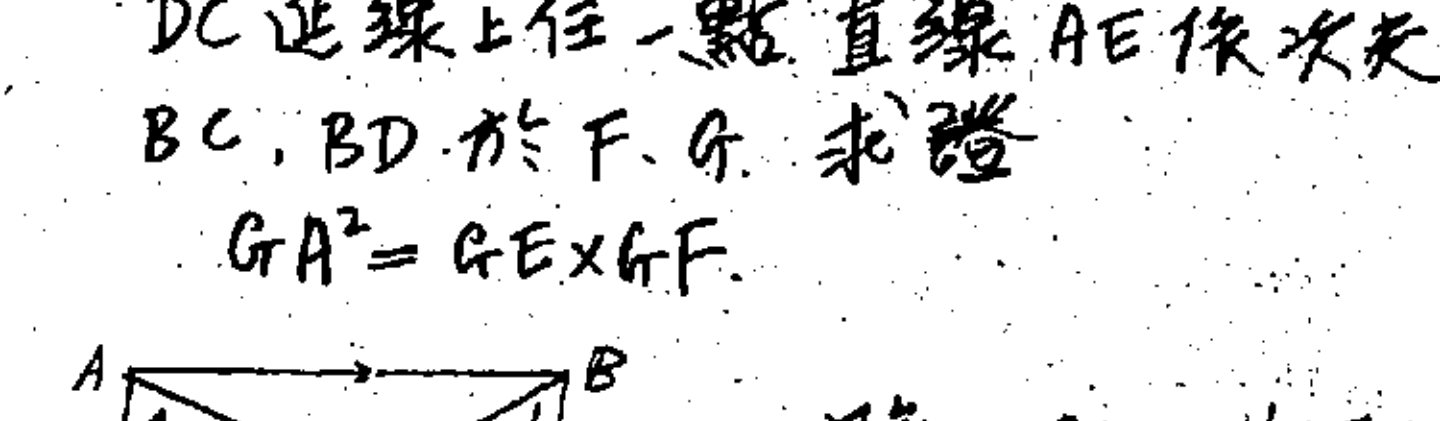 DC 延線上任一點. 直線 AE 依次交
BC, BD 於 F、G. 求證
GA²= GE×GF.
A B